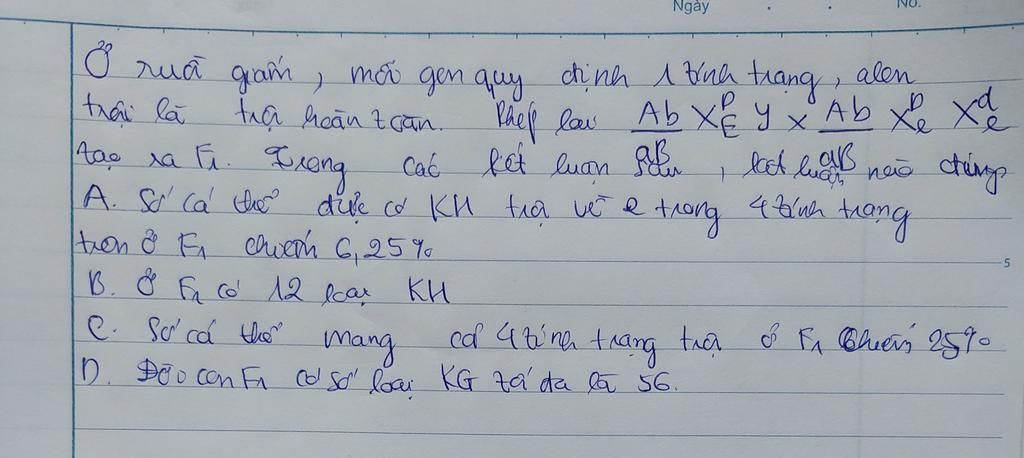 Ngày . . No.
Ở ruồi giấm, mỗi gen quy định 1 tính trạng, alen
trội là trội hoàn toàn. Phép lai Ab X_E^D Y x Ab X_e^D X_e^d
aB aB
tạo ra F1. Trong các kết luận sau, kết luận nào đúng
A. Số cá thể đực có KH trội về 2 trong 4 tính trạng
trên ở F1 chiếm 6,25%
B. Ở F1 có 12 loại KH
C. Số cá thể mang cả 4 tính trạng trội ở F1 chiếm 25%
D. Đời con F1 có số loại KG tối đa là 56.
5